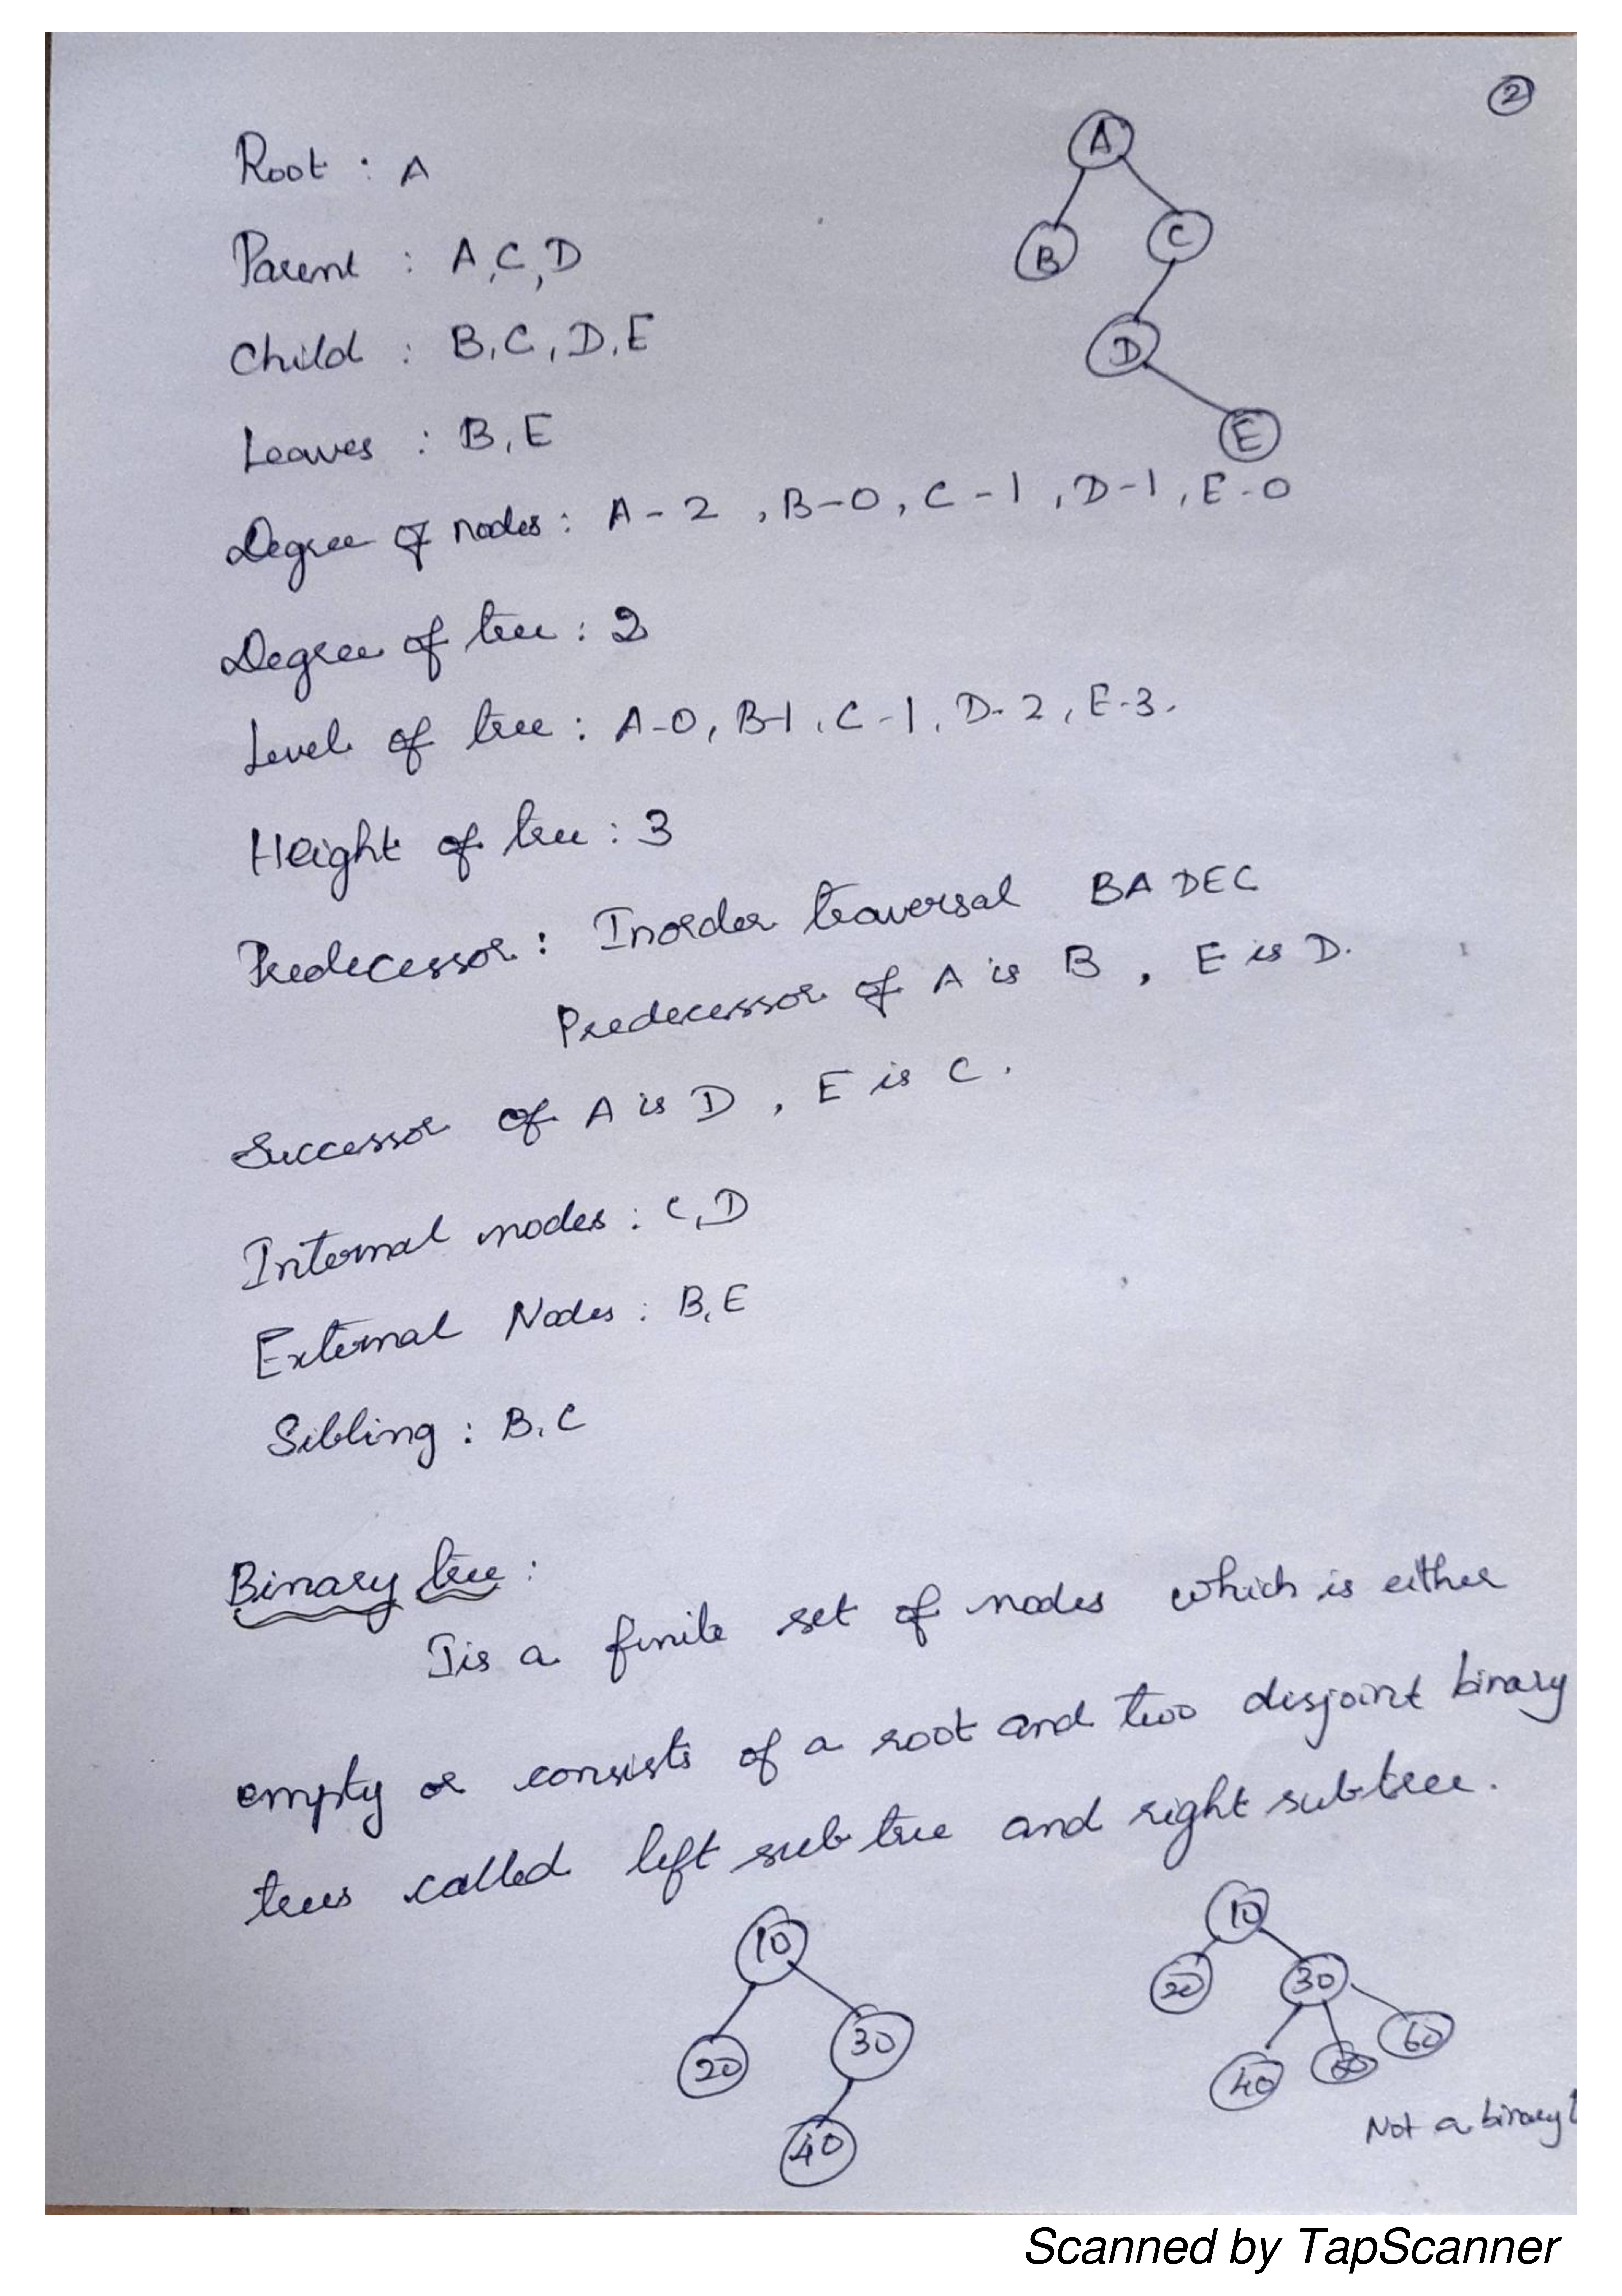 2
Root : A
Parent : A,C,D
Child : B,C,D,E
Leaves : B,E
Degree of nodes : A-2, B-0, C-1, D-1, E-0
Degree of tree : 2
Level of tree : A-0, B-1, C-1, D-2, E-3.
Height of tree : 3
Predecessor : Inorder traversal BADEC
Predecessor of A is B, E is D.
Successor of A is D, E is C.
Internal nodes : C,D
External Nodes : B,E
Sibling : B,C
A
B
C
D
E
Binary tree :
Tis a finite set of nodes which is either
empty or consists of a root and two disjoint binary
trees called left sub tree and right subtree.
10
20
30
40
10
20
30
40
60
Not a binary
Scanned by TapScanner